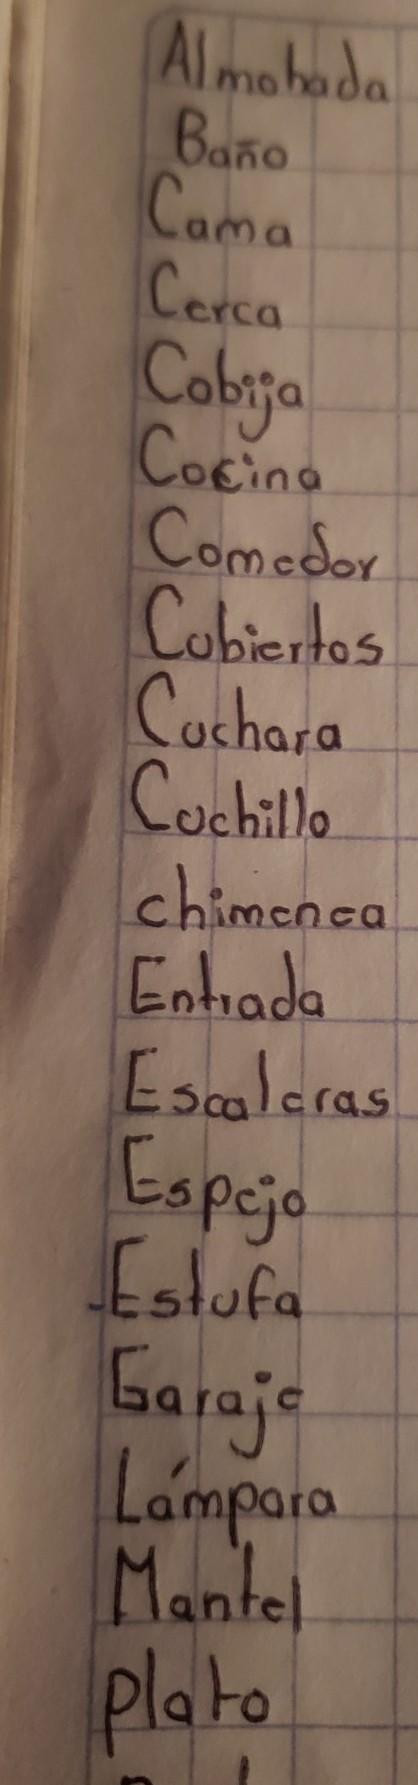 Almohada
Baño
Cama
Cerca
Cobija
Cocina
Comedor
Cubiertos
Cuchara
Cuchillo
chimenea
Entrada
Escaleras
Espejo
Estufa
Garaje
Lámpara
Mantel
plato